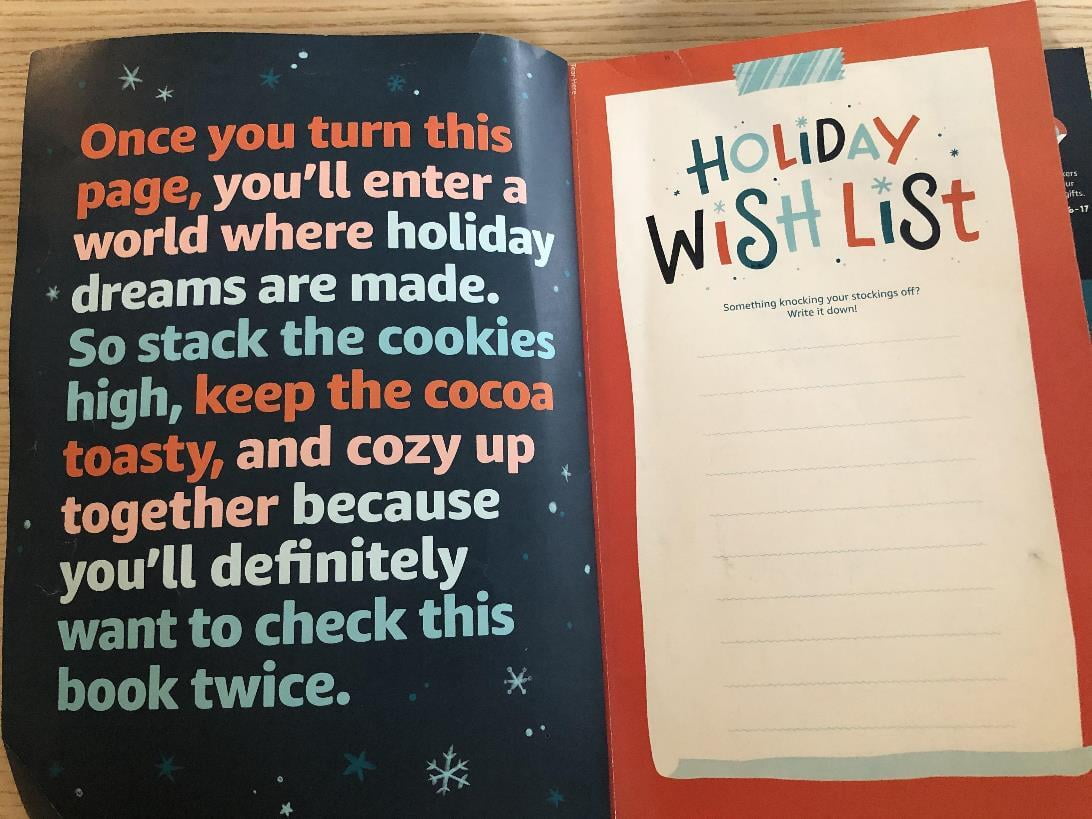 Once you turn this
page, you'll enter a
world where holiday
dreams are made.
So stack the cookies
high, keep the cocoa
toasty, and cozy up
together because
you'll definitely
want to check this
book twice.
Tear Here
HOLiDAY
WiSH LiSt
Something knocking your stockings off?
Write it down!
gifts.
6-17